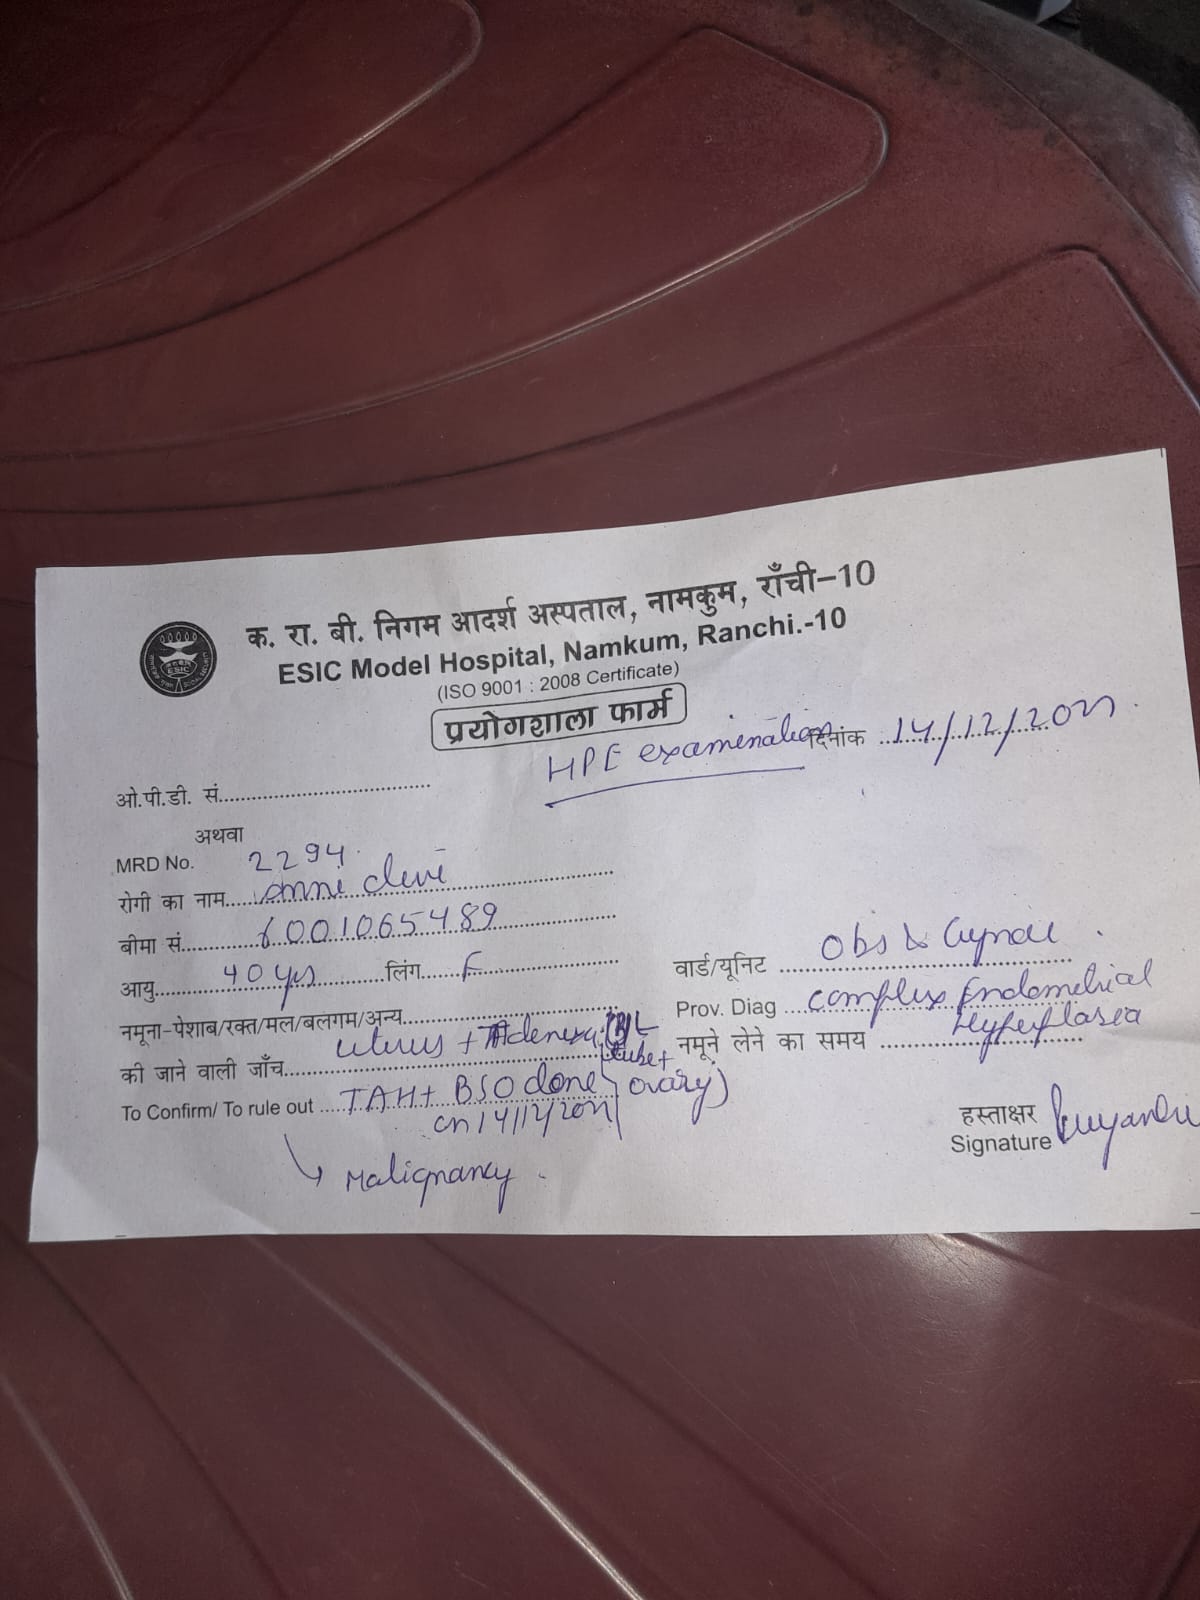 क. रा. बी. निगम आदर्श अस्पताल, नामकुम, राँची-10
ESIC Model Hospital, Namkum, Ranchi.-10
(ISO 9001 : 2008 Certificate)
प्रयोगशाला फार्म
HPE examination
दिनांक 14/12/202
ओ.पी.डी. सं.
अथवा
MRD No. 2294
रोगी का नाम devi
बीमा सं. 6001065489
आयु 40 yrs लिंग F
वार्ड/यूनिट Obs & Gynae
नमूना-पेशाब/रक्त/मल/बलगम/अन्य
Prov. Diag Complex Endometrial
Hyperplasia
की जाने वाली जाँच uterus + Adenexa
(tube+
ovary)
नमूने लेने का समय
To Confirm/ To rule out TAH + BSO done
on 14/12/202
Malignancy
हस्ताक्षर
Signature